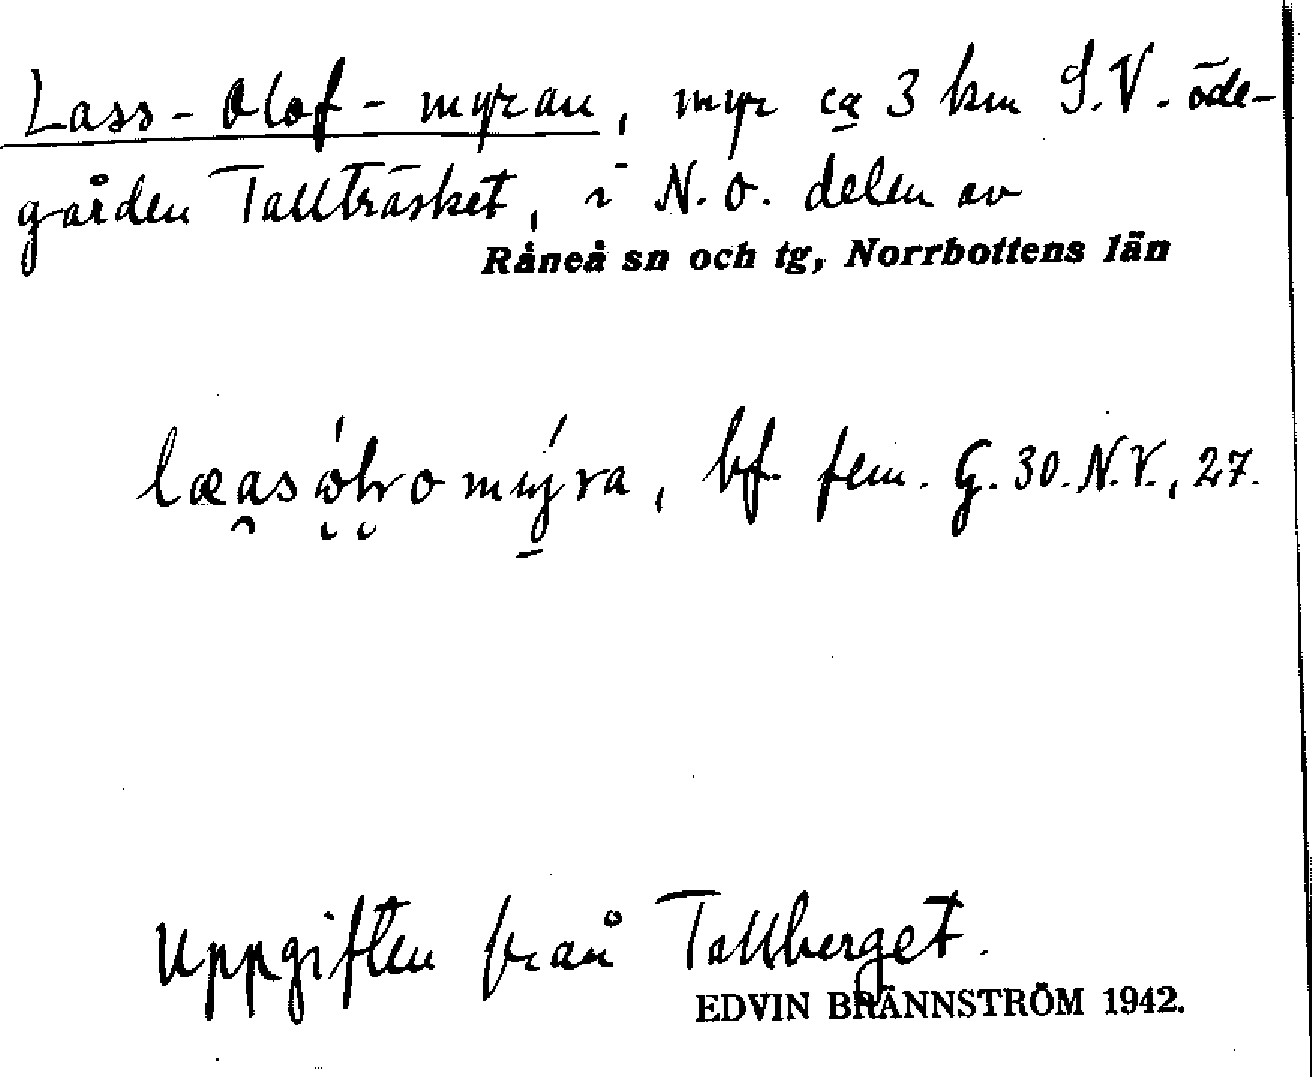 Lass-Olof-myran, myr ca 3 km S.V. öde-
gården Tallträsket, i N.ö. delen av
Råneå sn och tg, Norrbottens län
bf. fem. G. 30. N.V., 27.
Uppgiften från Tallberget.
EDVIN BRÄNNSTRÖM 1942.